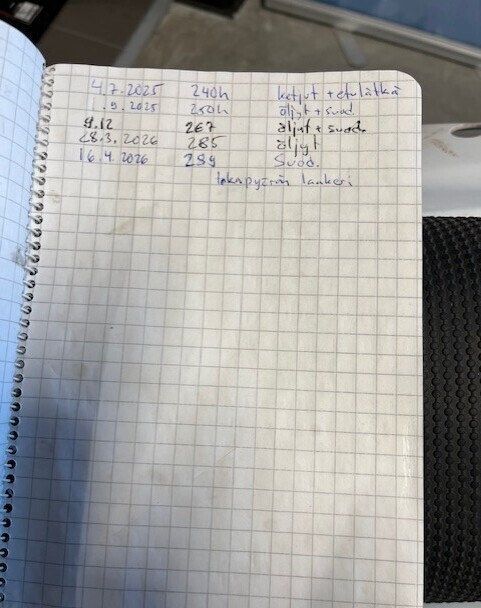 4.7.2025 240h ketjut + etulätkä
1.9.2025 250h öljyt + suod
9.12 267 öljyt + suod.
28.3.2026 285 öljyt
16.4.2026 289 Suod.
takapyörän laakeri